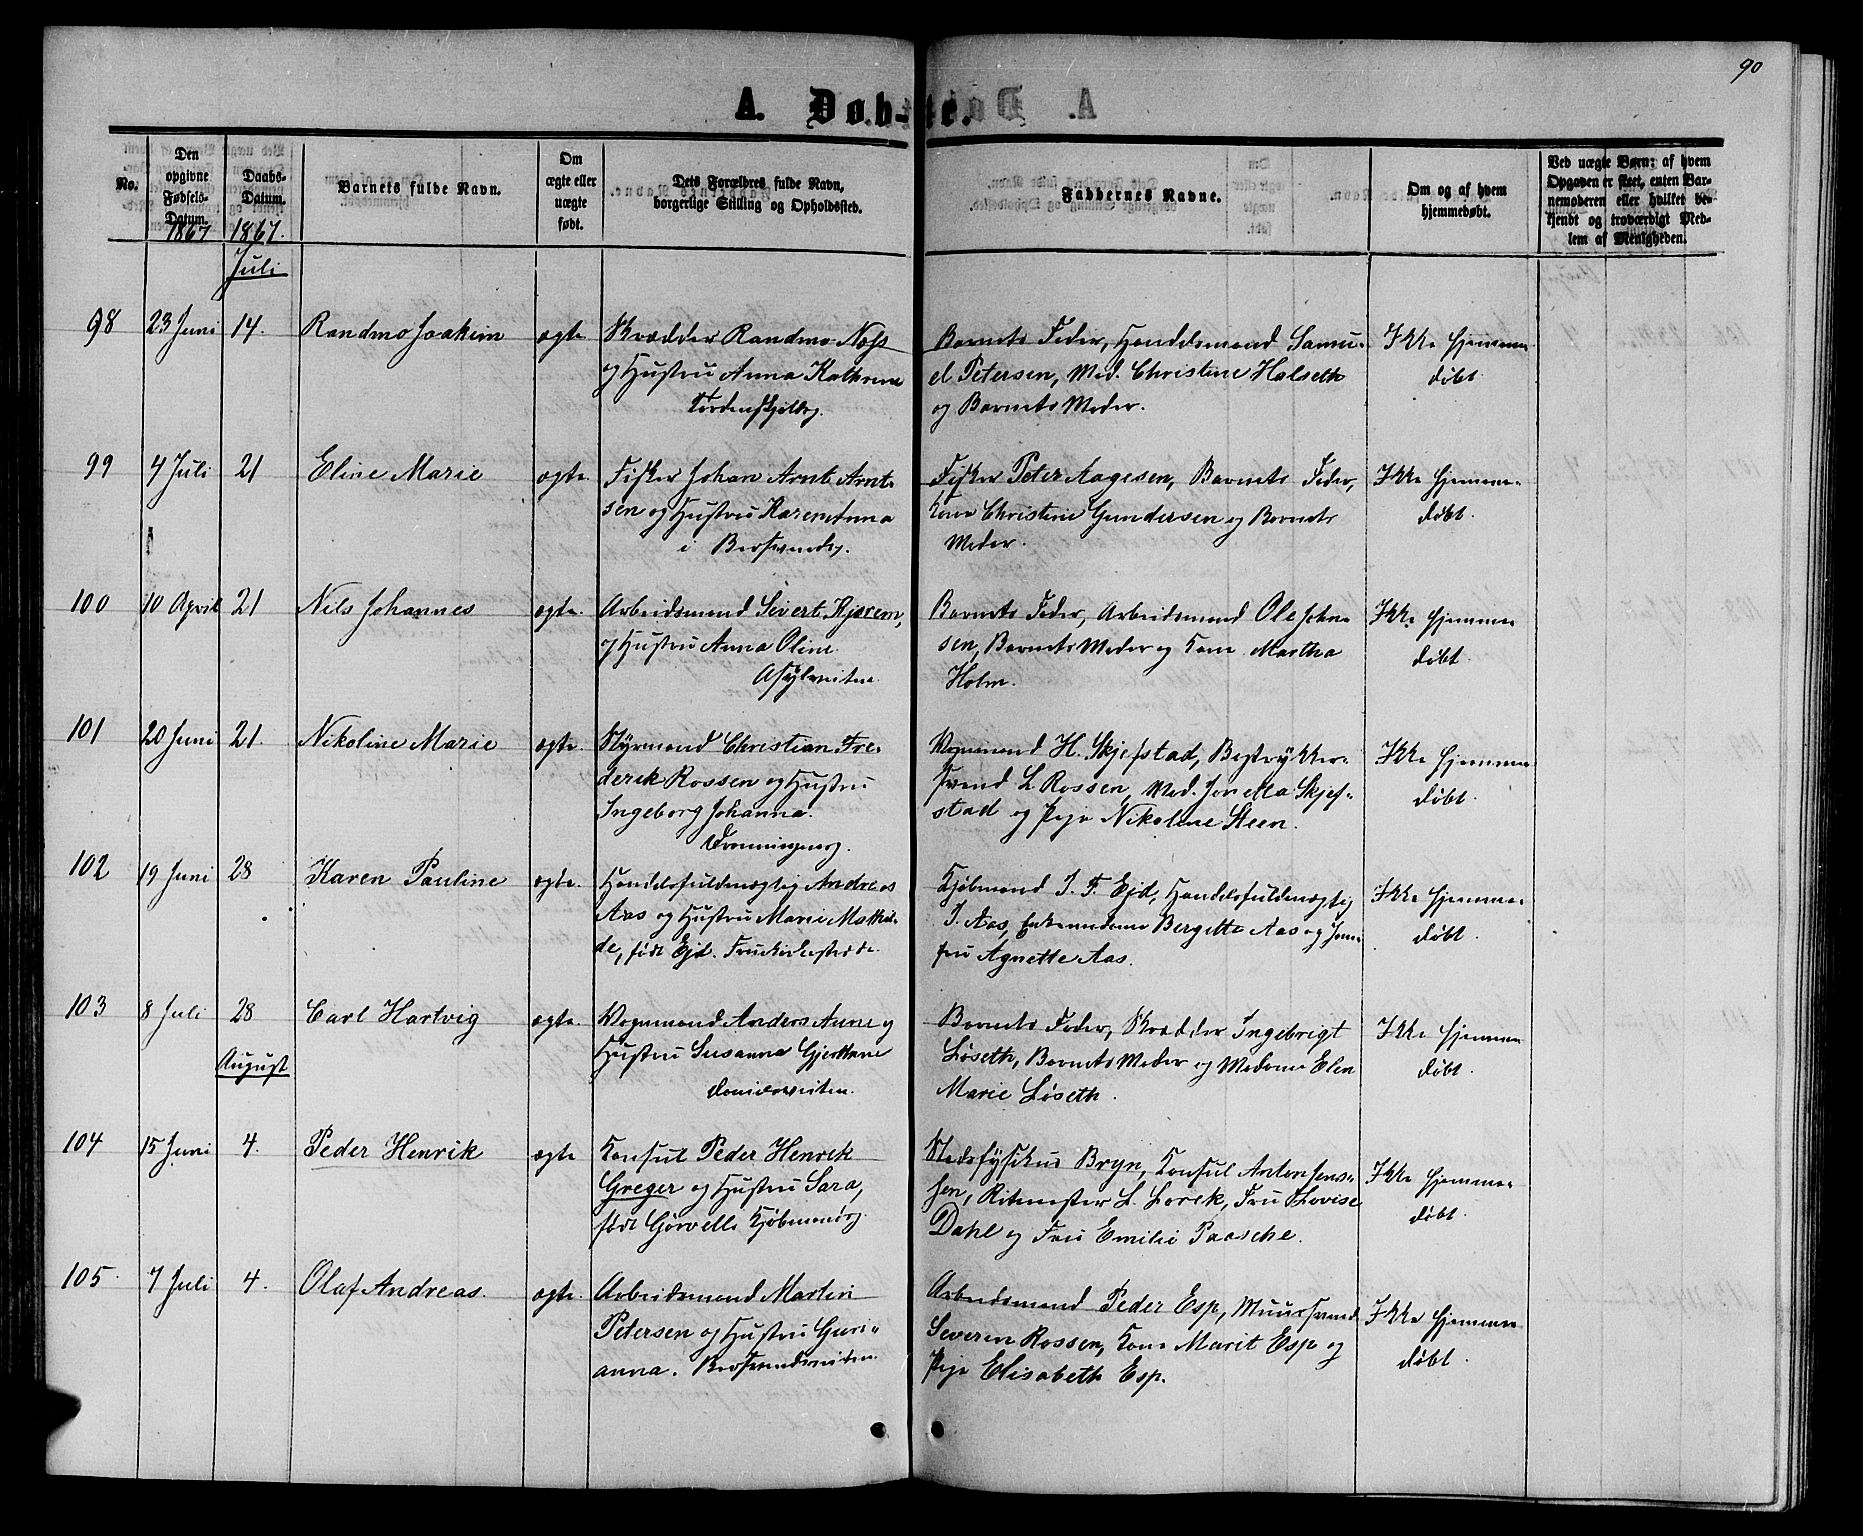 90
A. Døb-te.
No.
Den opgivne Fødsels-Datum.
1867
Daabs-Datum.
1867.
Barnets fulde Navn.
Om ægte eller uægte født.
Dets Forældres fulde Navn, borgerlige Stilling og Opholdssted.
Faddernes Navne.
Om og af hvem hjemmedøbt.
Ved uægte Børn; af hvem Opgaven er skeet, enten Barnemoderen eller hvilket bekjendt og troværdigt Medlem af Menigheden.
Juli
98 23 Juni 14. Randmo Joakim ægte
Skrædder Randmo Næss
og Hustru Anna Kathrine
Tordenskjoldsg.
Barnets Fader, Handelsmand Samu-
el Petersen, Mad. Christine Halseth
og Barnets Moder.
Ikke hjemme
døbt.
99 4 Juli 21 Eline Marie ægte.
Fisker Johan Arnt Arnt-
sen og Hustru Karen Anna
i Baksvendsg.
Fisker Peter Aagesen, Barnets Fader,
Kone Christine Gundersen og Barnets
Moder.
Ikke hjemme-
døbt.
100 10 April 21 Nils Johannes ægte.
Arbeidsmand Sivert Kjørem,
og Hustru Anna Oline
Asylveiten
Barnets Fader, Arbeidsmand Ole John-
sen, Barnets Moder og Kone Martha
Holm.
Ikke hjemme
døbt.
101 20 Juni 21. Nikoline Marie ægte.
Styrmand Christian Fre-
derik Rossen og Hustru
Ingeborg Johanna.
Dronningensg.
Vognmand H. Skjefstad, Bogtrykker-
svend L Rossen, Mad. Jonetta Skjef-
stad og Pige Nikoline Steen.
Ikke hjemme
døbt.
102 19 Juni 28 Karen Pauline ægte.
Handelsfuldmægtig Andreas
Aas og Hustru Marie Mathil-
de, født Ejd.
Kjøbmand J. F. Ejd, Handelsfuldmægtig
J. Aas, Enkemadame Bergitte Aas og Jom-
fru Agnette Aas.
Ikke hjemme-
døbt.
103 8 Juli 28 Carl Hartvig ægte.
Vognmand Anders Aune og
Hustru Susanna Gjertkone
Danielsveiten.
Barnets Fader, Skrædder Ingebrigt
Løseth, Barnets Moder og Madame Elen
Marie Løseth.
Ikke hjemme
døbt.
August
104 15 Juni 4. Peder Henrik ægte
Konsul Peder Henrik
Greger og Hustru Sara,
født Gørvell. Kjøbmandsg.
Stadsfysikus Bryn, Konsul Anton Jens-
sen, Ritmester L. Lorck, Fru Lovise
Dahl og Fru Emilie Paasche.
Ikke hjemme-
døbt.
105. 7 Juli 4. Olaf Andreas. ægte.
Arbeidsmand Martin
Petersen og Hustru Guri-
anna.
Arbeidsmand Peder Esp, Muursvend
Severin Rossen, Kone Marit Esp og
Pige Elisabeth Esp.
Ikke hjemme
døbt.